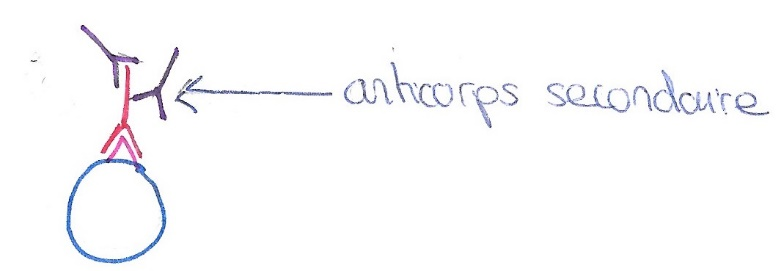 anticorps secondaire